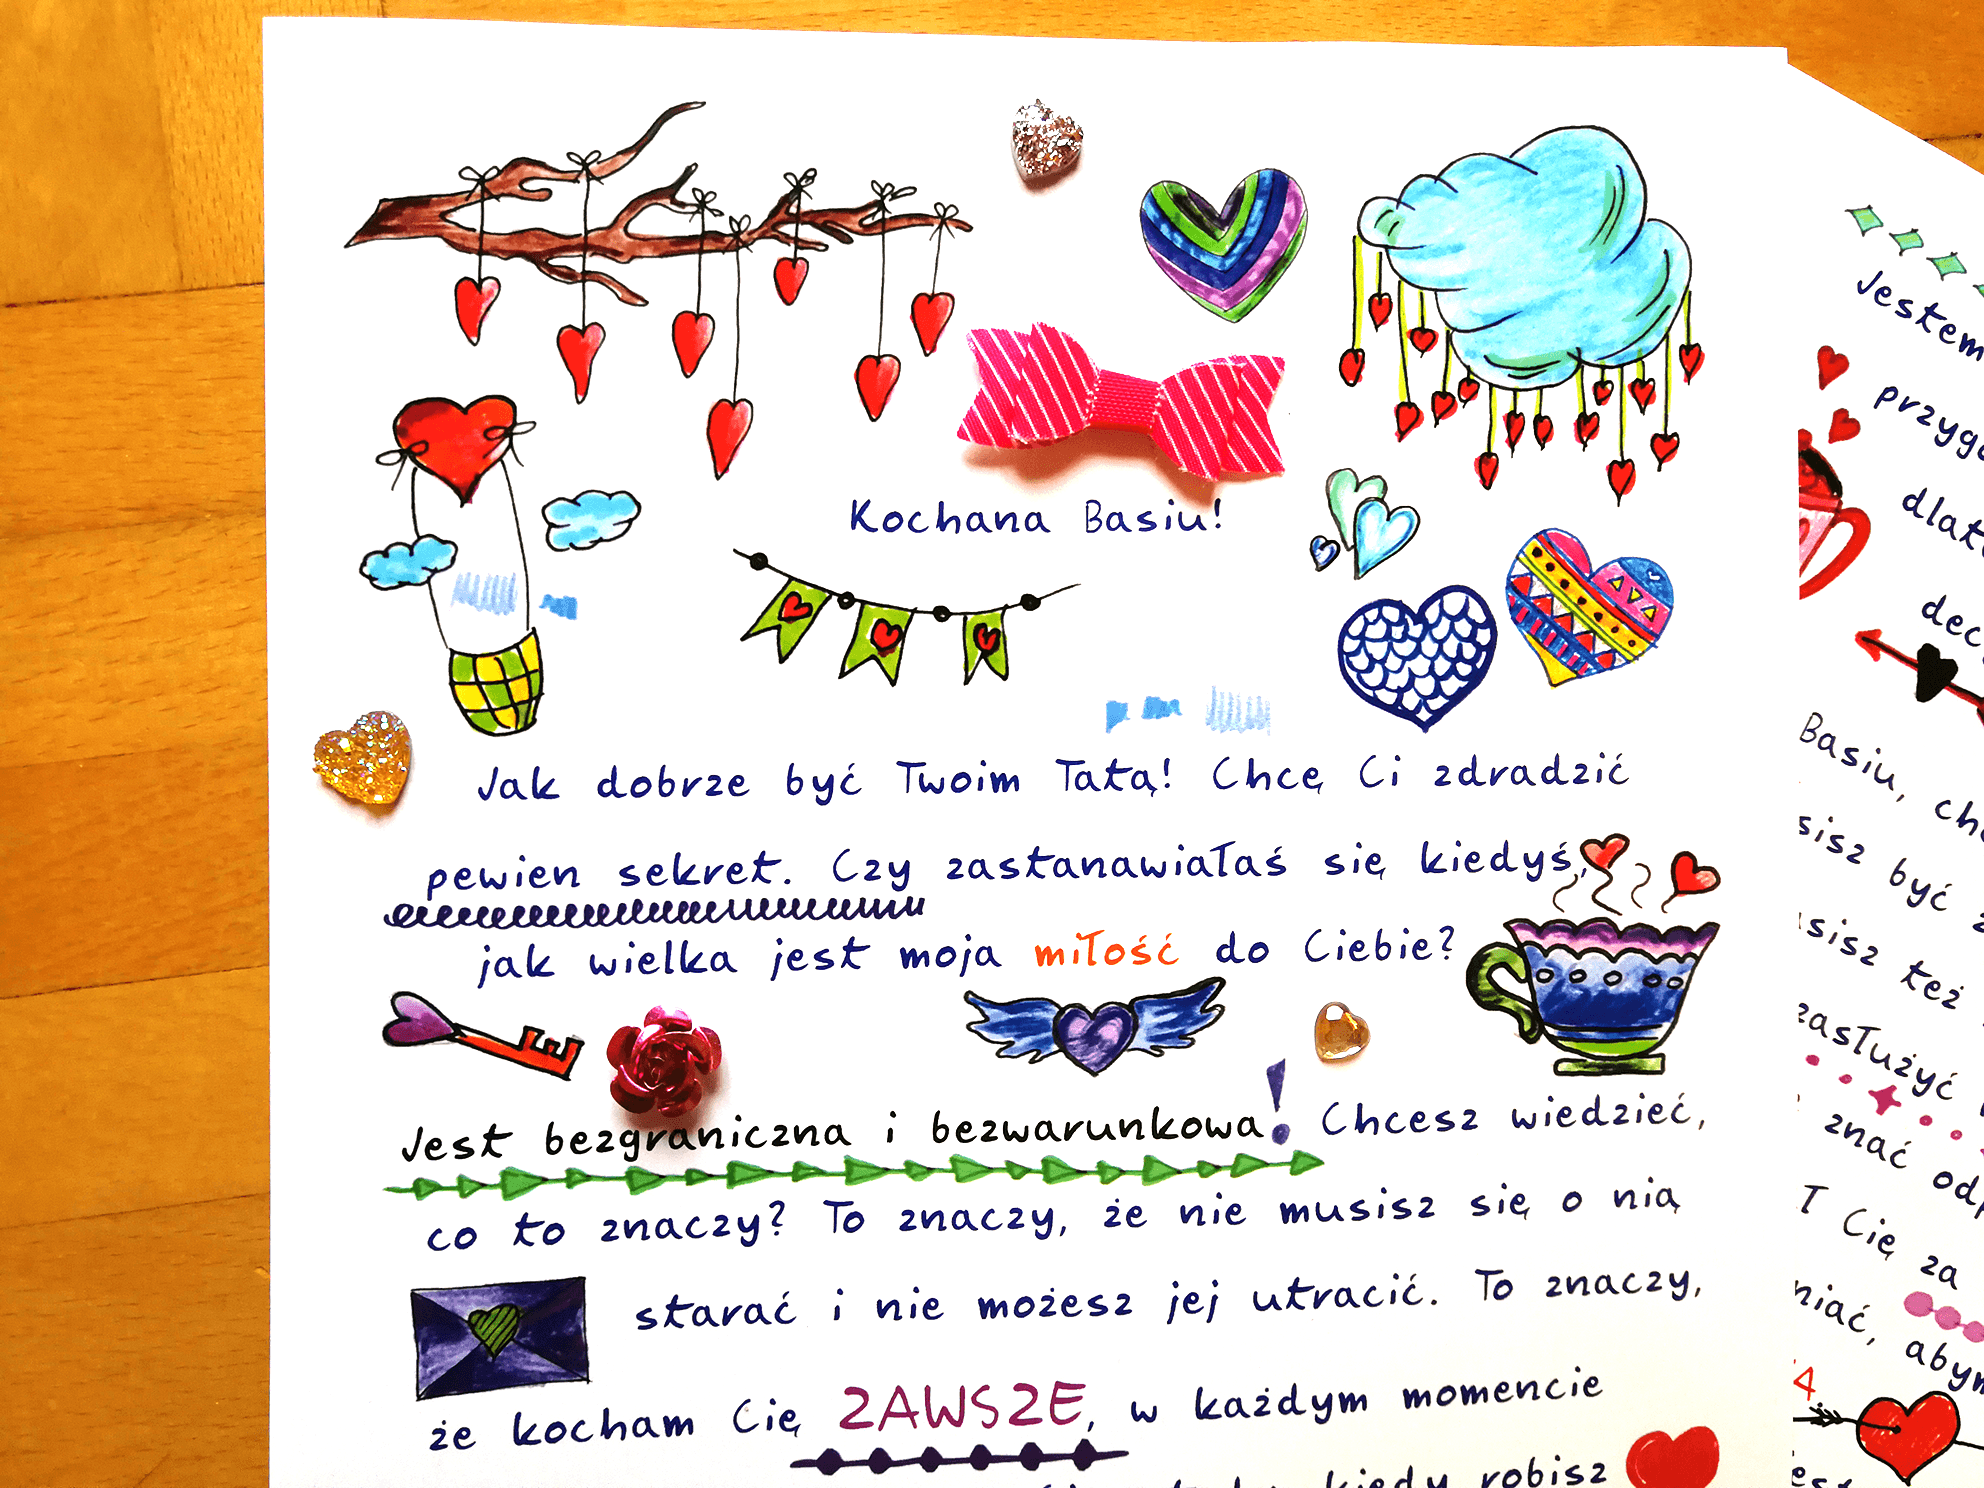 Kochana Basiu!
Jak dobrze być Twoim Tatą! Chcę Ci zdradzić
pewien sekret. Czy zastanawiałaś się kiedyś,
jak wielka jest moja miłość do Ciebie?
Jest bezgraniczna i bezwarunkowa! Chcesz wiedzieć,
co to znaczy? To znaczy, że nie musisz się o nią
starać i nie możesz jej utracić. To znaczy,
że kocham Cię ZAWSZE, w każdym momencie
kiedy robisz
Jestem
przyg
dlat
dec
Basiu, ch
sisz być
sisz też
zasłużyć
znać od
T Cię za
niać, abym